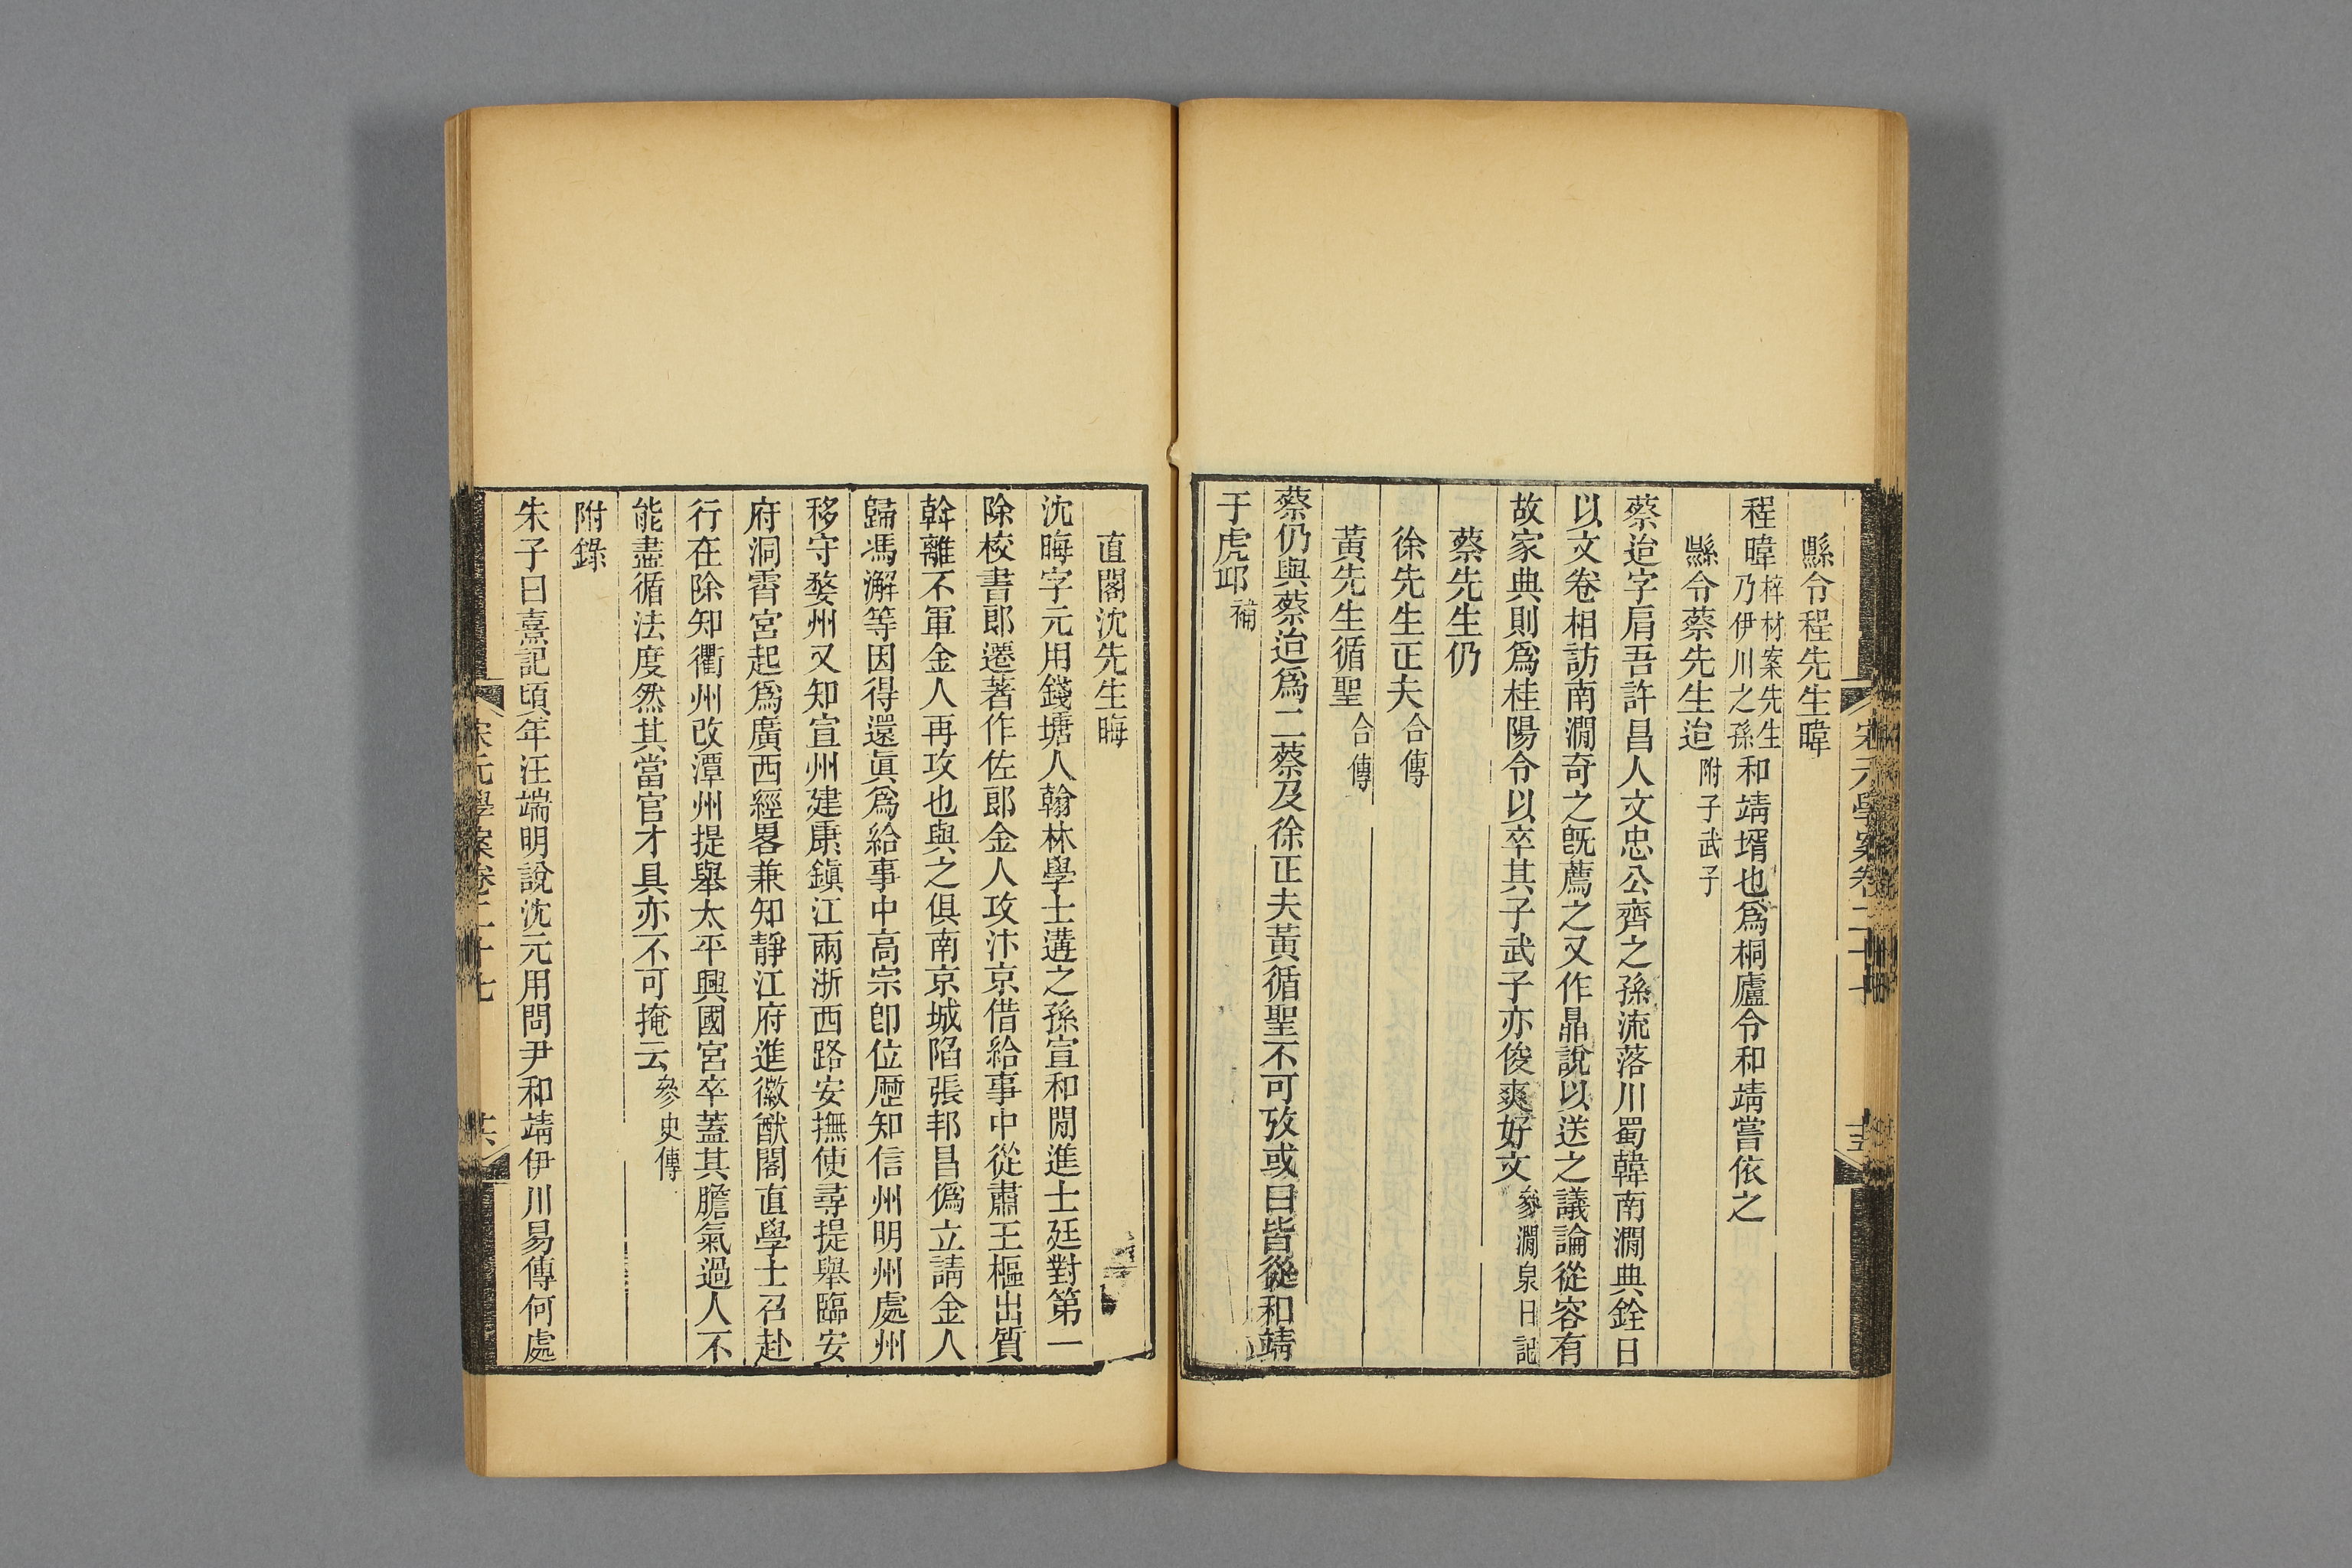 宋元學案卷二十七
十五
縣令程先生暐
程暐梓材案先生乃伊川之孫和靖壻也爲桐廬令和靖嘗依之
縣令蔡先生迨附子武子
蔡迨字肩吾許昌人文忠公齊之孫流落川蜀韓南澗典銓日
以文卷相訪南澗奇之旣薦之又作鼎說以送之議論從容有
故家典則爲桂陽令以卒其子武子亦俊爽好文參澗泉日記
蔡先生仍
徐先生正夫合傳
黃先生循聖合傳
蔡仍與蔡迨爲二蔡及徐正夫黃循聖不可攷或曰皆從和靖
于虎邱補
直閣沈先生晦
沈晦字元用錢塘人翰林學士遘之孫宣和閒進士廷對第一
除校書郎遷著作佐郎金人攻汴京借給事中從肅王樞出質
斡離不軍金人再攻也與之俱南京城陷張邦昌僞立請金人
歸馮澥等因得還眞爲給事中高宗卽位歷知信州明州處州
移守婺州又知宣州建康鎭江兩浙西路安撫使尋提舉臨安
府洞霄宮起爲廣西經畧兼知靜江府進徽猷閣直學士召赴
行在除知衢州改潭州提舉太平興國宮卒蓋其膽氣過人不
能盡循法度然其當官才具亦不可掩云參史傳
附錄
朱子曰熹記頃年汪端明說沈元用問尹和靖伊川易傳何處
宋元學案卷二十七
共